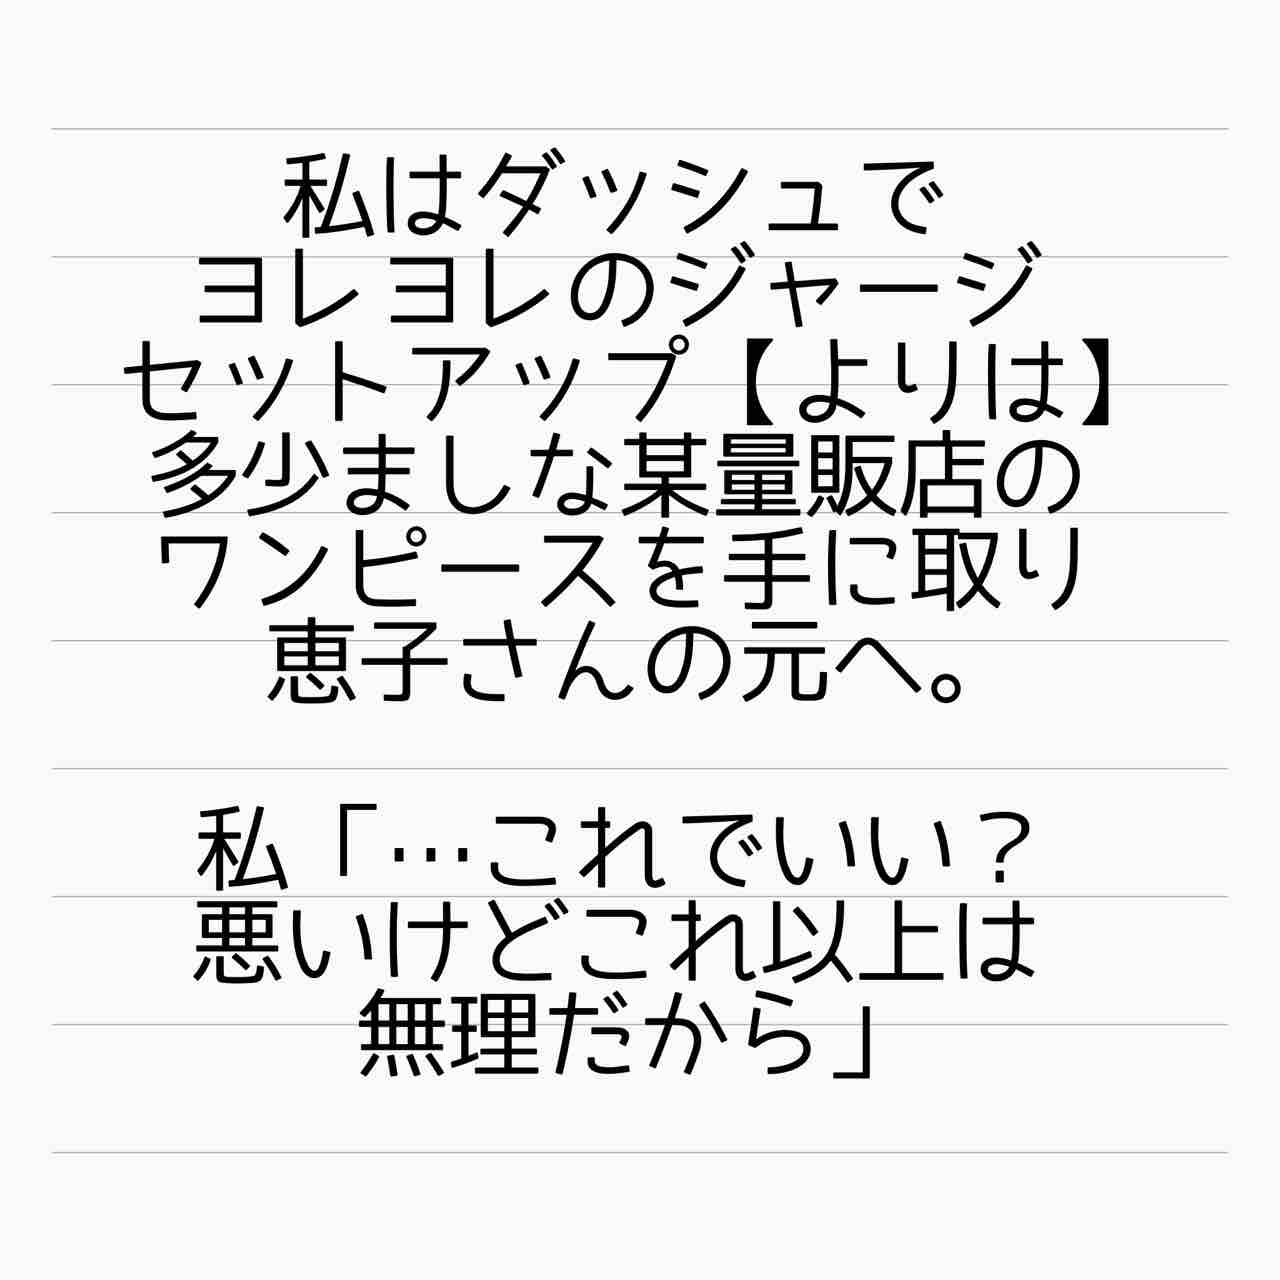 私はダッシュで
ヨレヨレのジャージ
セットアップ【よりは】
多少ましな某量販店の
ワンピースを手に取り
恵子さんの元へ。
私「…これでいい？
悪いけどこれ以上は
無理だから」